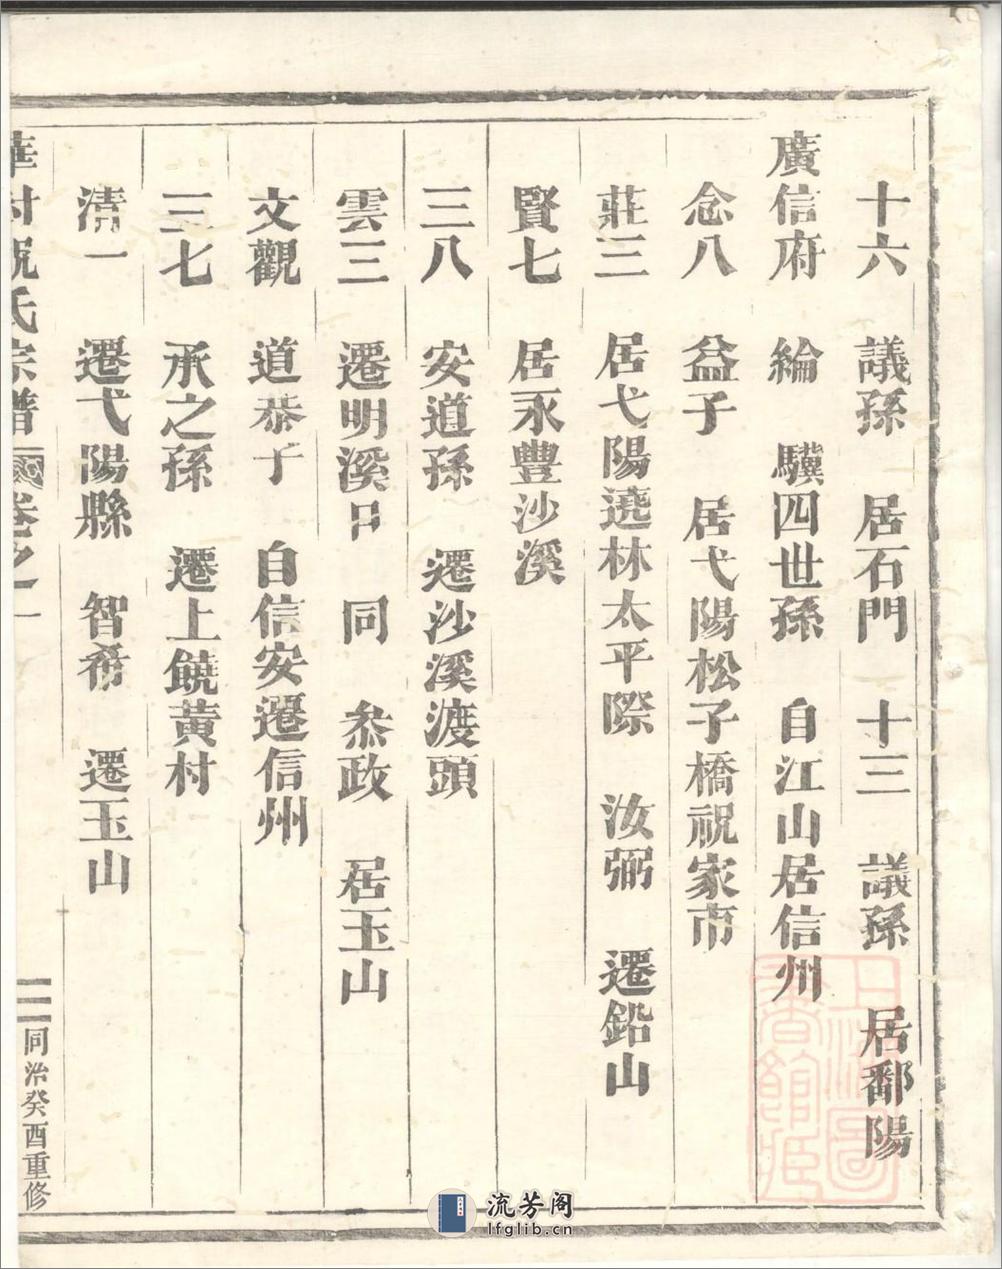 十六 議孫 居石門 十三 議孫 居鄱陽
廣信府 綸 驥四世孫 自江山居信州
念八 益子 居弋陽松子橋祝家市
莊三 居弋陽遶林太平際 汝弼 遷鉛山
賢七 居永豐沙溪
三八 安道孫 遷沙溪渡頭
雲三 遷明溪口 同 叅政 居玉山
文觀 道恭子 自信安遷信州
三七 承之孫 遷上饒黃村
清一 遷弋陽縣 智 遷玉山
村祝氏宗譜 卷之一
同治癸酉重修
流芳阁
lfglib.cn